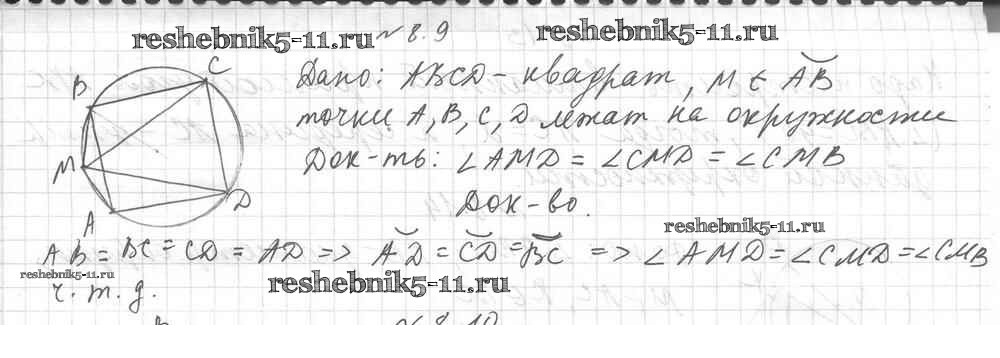 reshebnik5-11.ru № 8.9 reshebnik5-11.ru
B C M A D
Дано: ABCD - квадрат, M ∈ AB
точки A, B, C, D лежат на окружности
Док-ть: ∠AMD = ∠CMD = ∠CMB
Док-во.
reshebnik5-11.ru
AB = BC = CD = AD => AD = CD = BC => ∠AMD = ∠CMD = ∠CMB
reshebnik5-11.ru
ч. т. д.
reshebnik5-11.ru